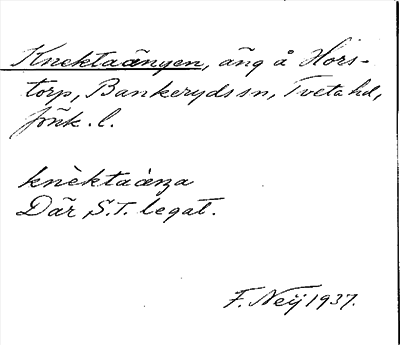 Knektaängen, äng å Hors-
torp, Bankeryds sn, Tveta hd,
Jönk. l.
knèktaàŋa
Där S.T. legat.
F. Neij 1937.